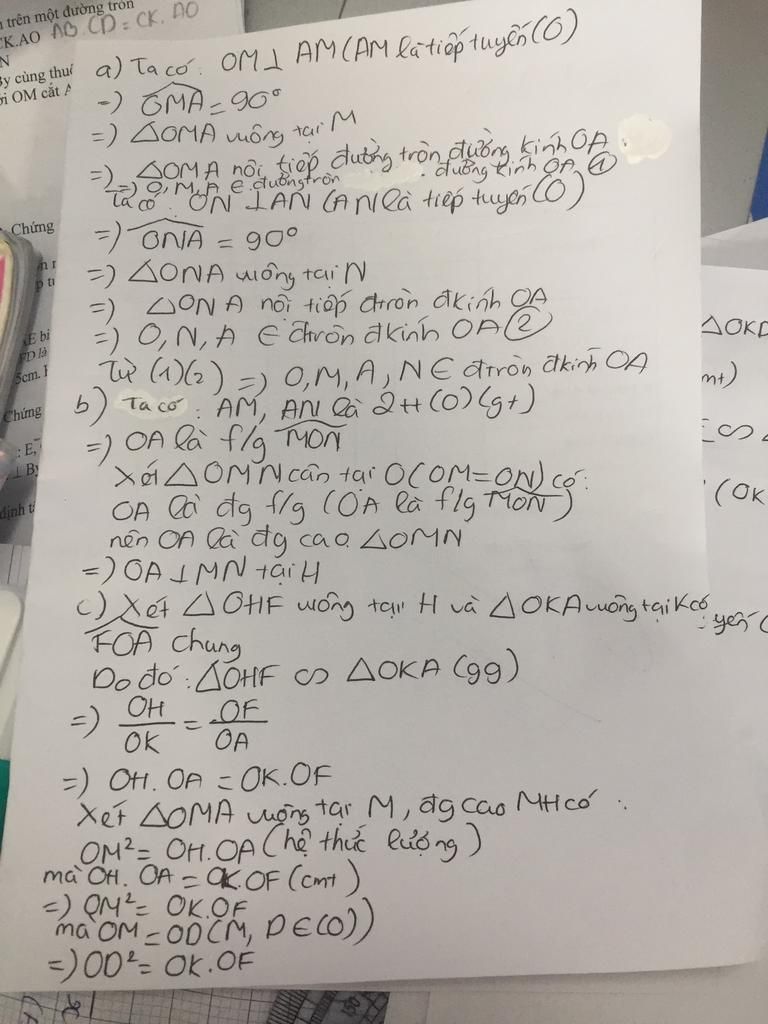 n trên một đường tròn
CK.AO AB.CD = CK.AO
N
By cùng thuộ
ới OM cắt A
Chứng
5cm.
Chứng
: E,
⊥ By
định t
a) Ta có: OM ⊥ AM (AM là tiếp tuyến (O)
=) OMA = 90°
=) △OMA vuông tại M
=) △OMA nội tiếp đường tròn đường kính OA
=) O, M, A ∈ đường tròn đường kính OA ①
Ta có: ON ⊥ AN (AN là tiếp tuyến (O)
=) ONA = 90°
=) △ONA vuông tại N
=) △ONA nội tiếp đtròn đkính OA
=) O, N, A ∈ đtròn đkính OA ②
Từ (1)(2) =) O, M, A, N ∈ đtròn đkính OA
b) Ta có: AM, AN là 2tt (O) (gt)
=) OA là f/g MON
Xét △OMN cân tại O (OM = ON) có:
OA là đg f/g (OA là f/g MON)
nên OA là đg cao △OMN
=) OA ⊥ MN tại H
c) Xét △OHF vuông tại H và △OKA vuông tại K có:
FOA chung
Do đó: △OHF ∽ △OKA (gg)
=) OH/OK = OF/OA
=) OH.OA = OK.OF
Xét △OMA vuông tại M, đg cao MH có:
OM² = OH.OA (hệ thức lượng)
mà OH.OA = OK.OF (cmt)
=) OM² = OK.OF
mà OM = OD (M, D ∈ (O))
=) OD² = OK.OF
△OKD
mt)
∽
(OK
yến (